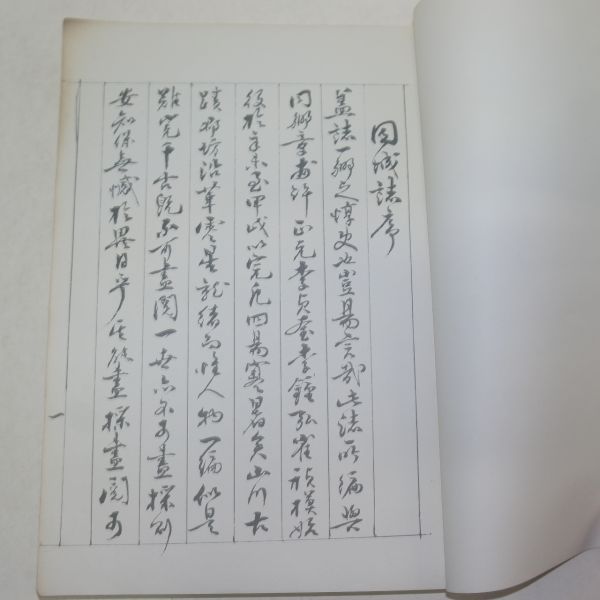 固城誌序
蓋誌一鄕之惇史也豈易言哉此誌所編與
同鄕章甫許正元李貞奎李鍾弘崔禎模始
役於辛未至甲戌以完凡四易寒暑矣山川古
蹟郡坊沿革就緖而惟人物一編似是
難完千古旣不可盡閱一世亦不可盡採則
安知保無憾於異日乎其能盡採盡閱可
一